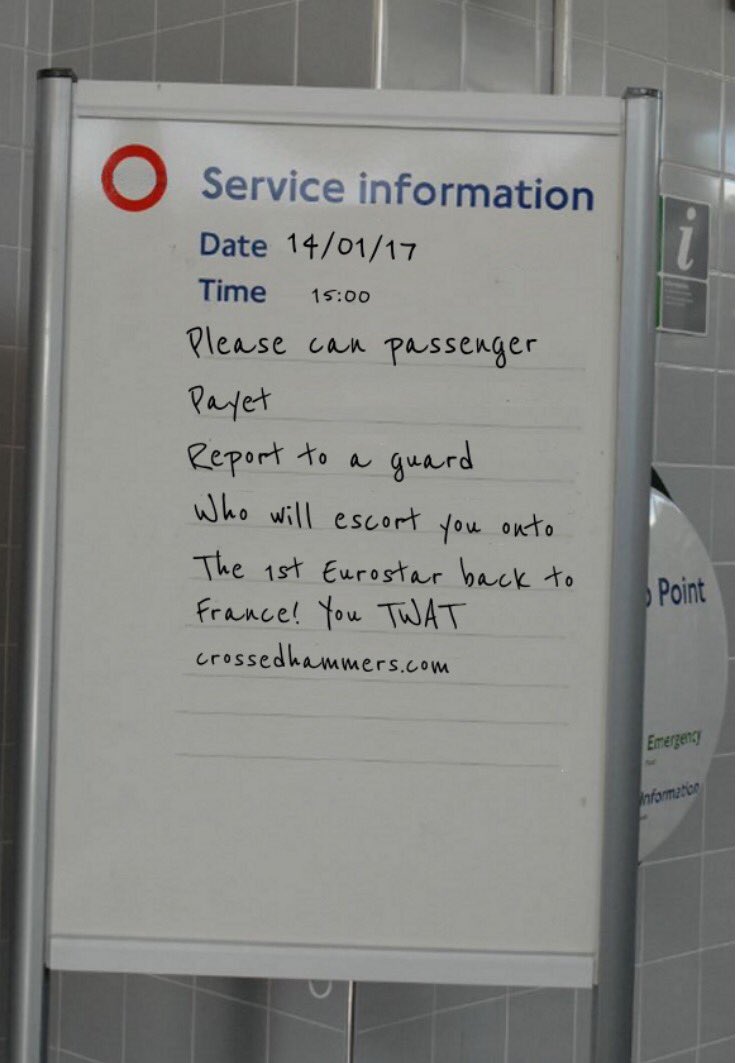 Service information
Date 14/01/17
Time 15:00
Please can passenger
Payet
Report to a guard
Who will escort you onto
The 1st Eurostar back to
France! You TWAT
crossedhammers.com
i
Point
Emergency
Information